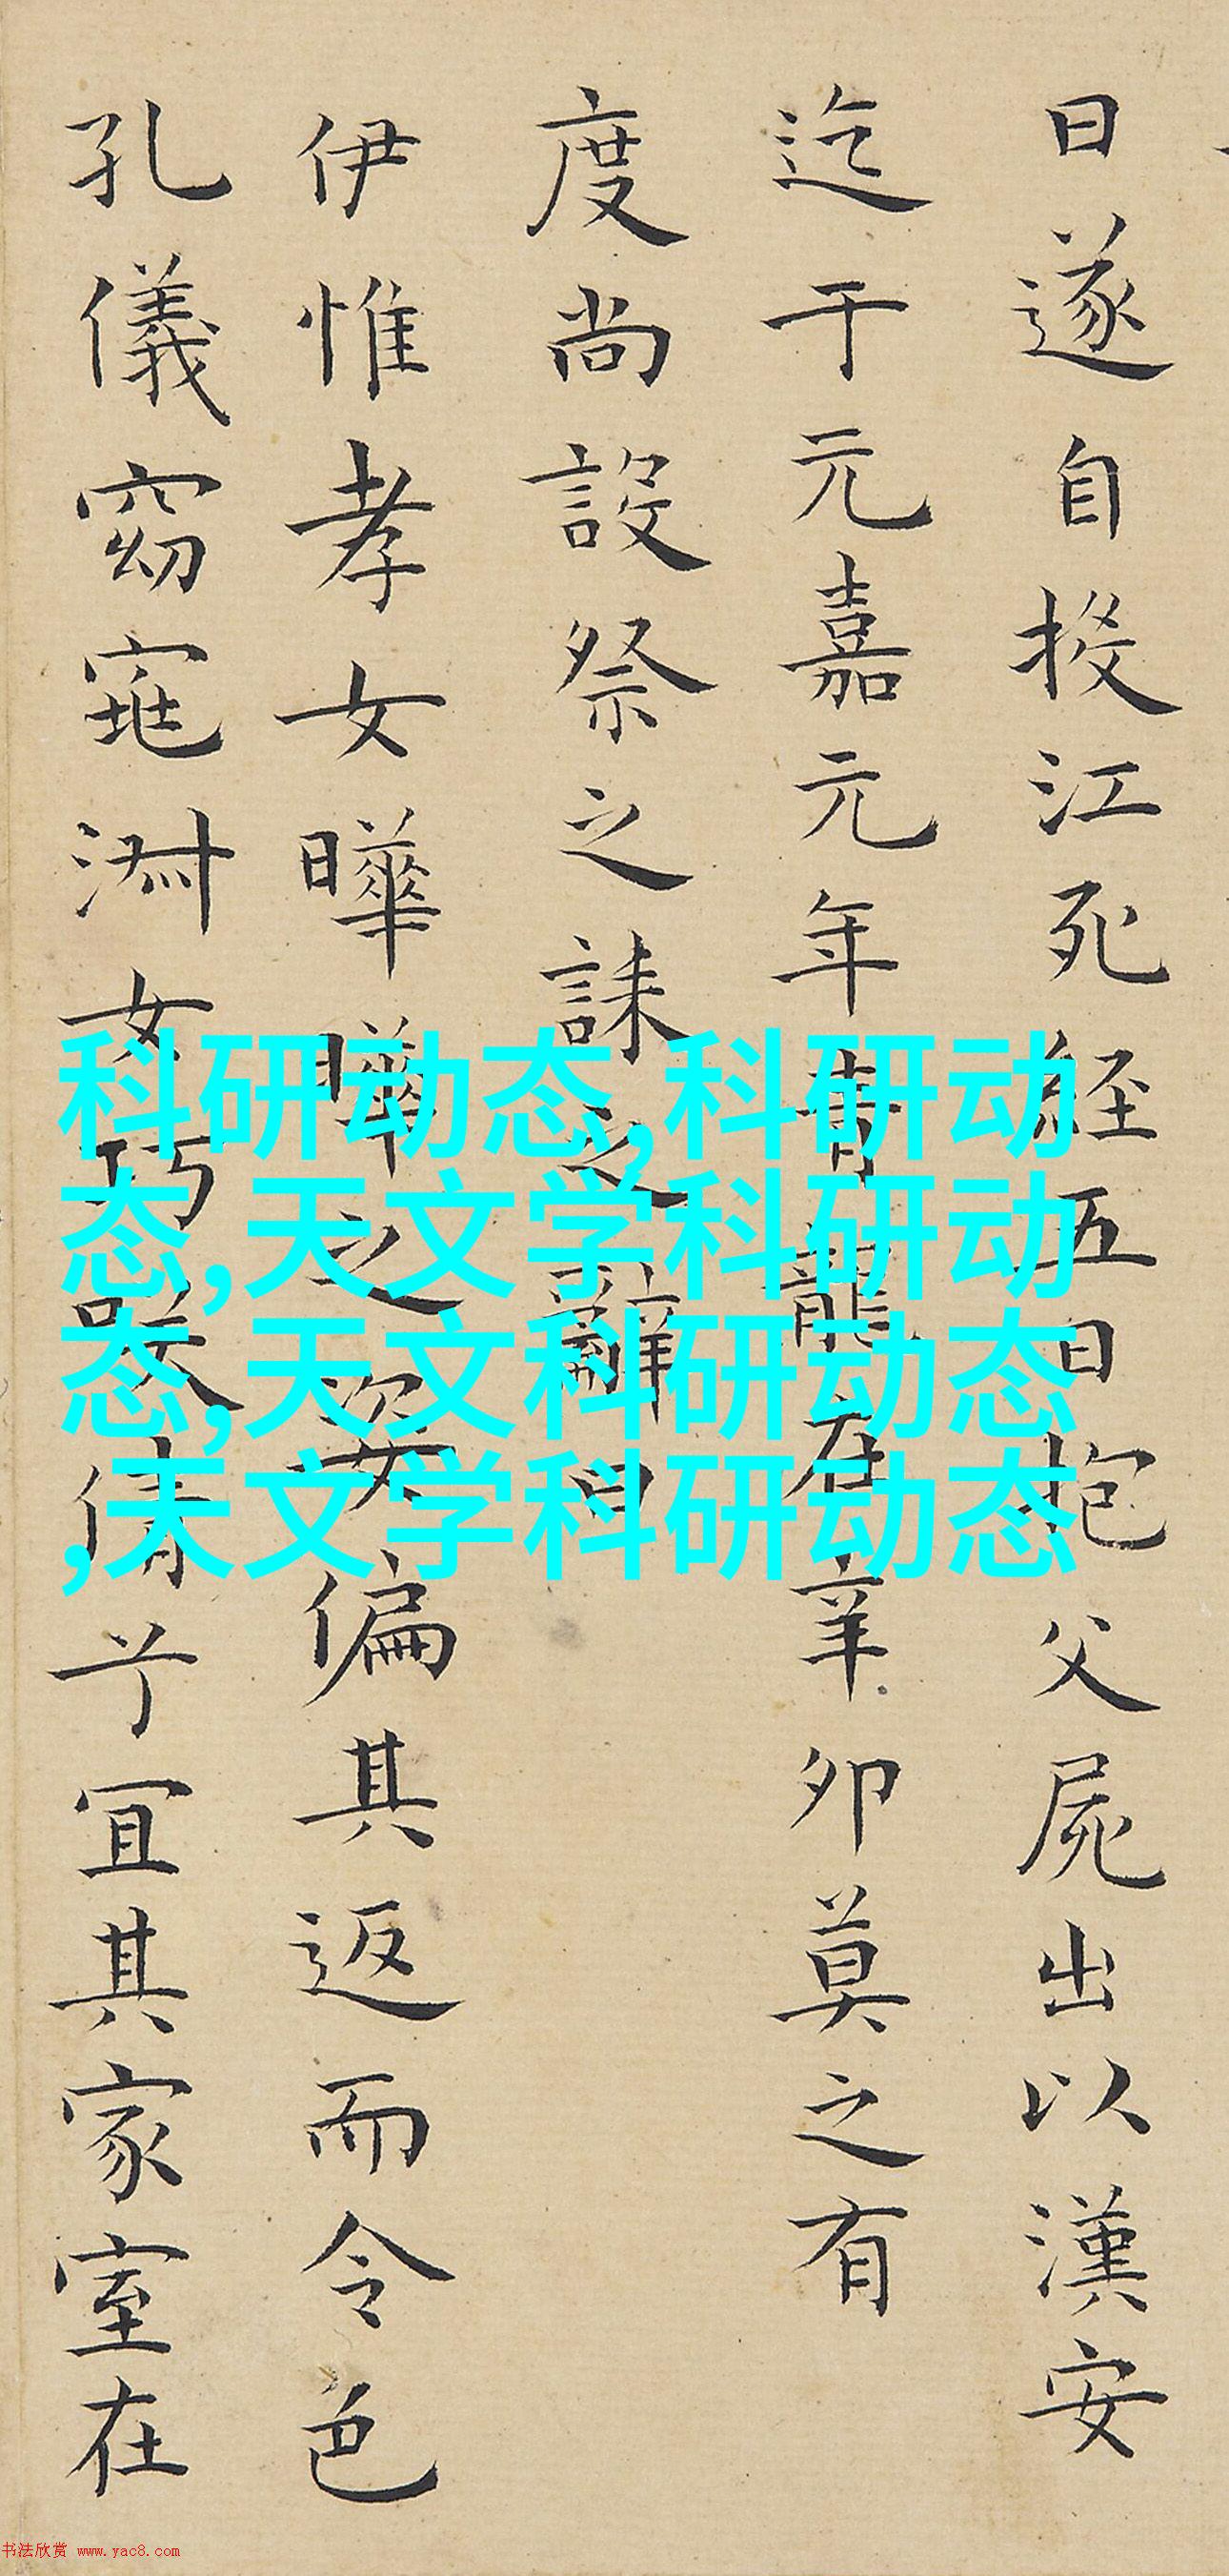 日遂自投江死經五日抱父屍出以漢安
迄于元嘉元年青龍在辛卯莫之有
度尚設祭之誄之辭曰
伊惟孝女曄曄之姿偏其返而令色
孔儀窈窕淑女巧笑倩兮宜其家室在
科研动态,科研动
态,天文学科研动
态,天文科研动态
,天文学科研动态
书法欣赏 www.yac8.com